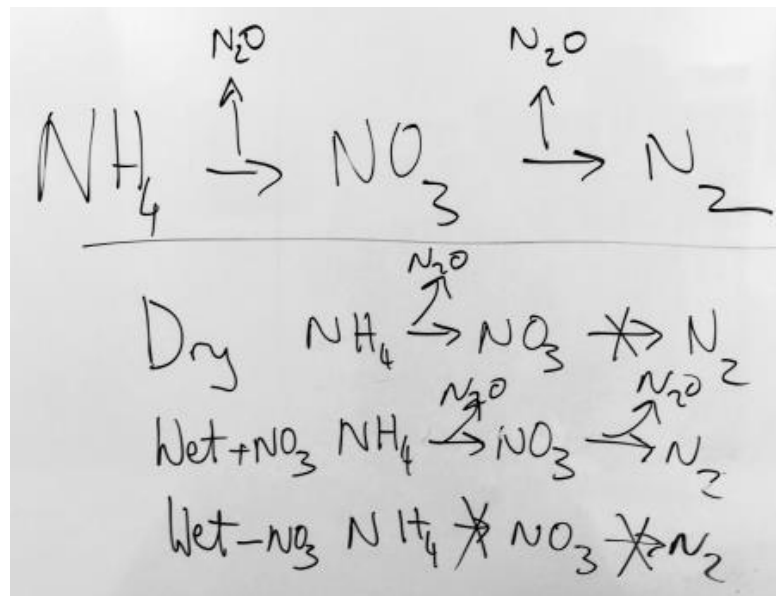 N₂O N₂O
NH₄ → NO₃ → N₂
N₂O
Dry NH₄ → NO₃ ↛ N₂
N₂O N₂O
Wet+NO₃ NH₄ → NO₃ → N₂
Wet-NO₃ NH₄ ↛ NO₃ ↛ N₂